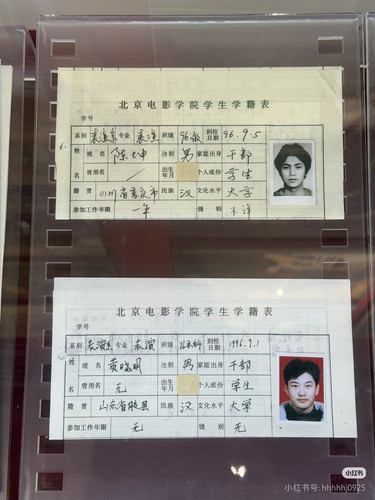 北京电影学院学生学籍表
学号
系别 表演系 专业 表演 班级 96级 到校日期 96.9.5
姓名 现名 陈坤 性别 男 家庭出身 干部
曾用名 / 出生年月 个人成份 学生
籍贯 四川省重庆市 民族 汉 文化水平 大学
参加工作年限 一年 级别
北京电影学院学生学籍表
学号
系别 表演系 专业 表演 班级 到校日期 1996.9.1
姓名 现名 黄晓明 性别 男 家庭出身 干部
曾用名 无 出生年月 个人成份 学生
籍贯 山东省胶县 民族 汉 文化水平 大学
参加工作年限 无 级别 无
小红书
小红书号: hhhhhj0925